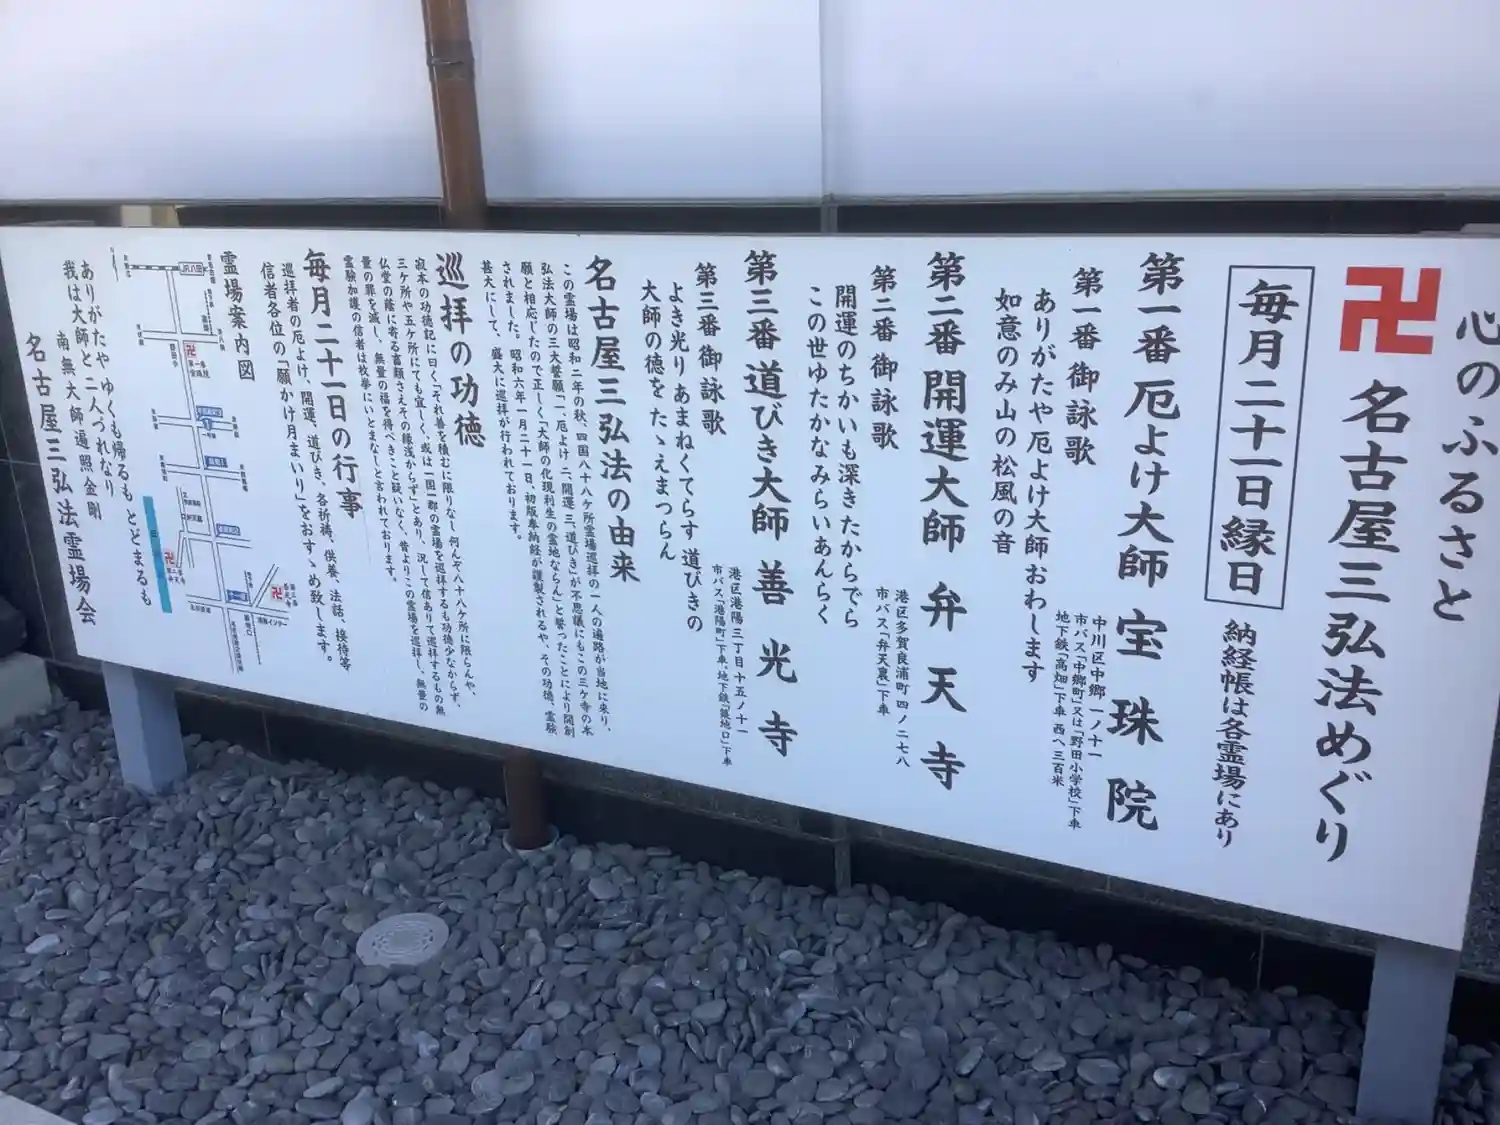 心のふるさと
卍 名古屋三弘法めぐり
毎月二十一日縁日
納経帳は各霊場にあり
第一番 厄よけ大師 宝珠院
中川区中郷一ノ十一
市バス「中郷町」又は「野田小学校」下車
地下鉄「高畑」下車 西へ三百米
第一番 御詠歌
ありがたや 厄よけ大師 おわします
如意のみ山の 松風の音
第二番 開運大師 弁天寺
港区多賀良浦町四ノ二七八
市バス「弁天裏」下車
第二番 御詠歌
開運の ちかいも深き たからでら
この世ゆたかな みらいあんらく
第三番 道びき大師 善光寺
港区港陽三丁目十五ノ十一
市バス「港陽町」下車、地下鉄「築地口」下車
第三番 御詠歌
よき光り あまねくてらす 道びきの
大師の徳を たゝえまつらん
名古屋三弘法の由来
この霊場は昭和二年の秋、四国八十八ケ所霊場巡拝の一人の遍路が当地に来り、
弘法大師の三大誓願「一、厄よけ 二、開運 三、道びき」が不思議にもこの三ケ寺の本
願と相応じたので正しく「大師の化現利生の霊地ならん」と誓ったことにより開創
されました。昭和六年一月二十一日、初版奉納経が謹製されるや、その功徳、霊験
甚大にして、盛大に巡拝が行われております。
巡拝の功徳
寂本の功徳記に曰く「それ善を積むに限りなし何んぞ八十八ケ所に限らんや、
三ケ所や五ケ所にても宜しく、或は一国一郡の霊場を巡拝するも功徳少なからず、
仏堂の蔭に寄る畜類さえその縁浅からず」とあり、況して信ありて巡拝するもの無
量の罪を滅し、無量の福を得べきこと疑いなく、昔よりこの霊場を巡拝し、無量の
霊験加護の信者は枚挙にいとまなしと言われております。
毎月二十一日の行事
巡拝者の厄よけ、開運、道びき、各祈祷、供養、法話、接待等
信者各位の「願かけ月まいり」をおすゝめ致します。
霊場案内図
JR八田
卍
卍
卍
ありがたや ゆくも帰るも とどまるも
我は大師と 二人づれなり
南無大師遍照金剛
名古屋三弘法霊場会